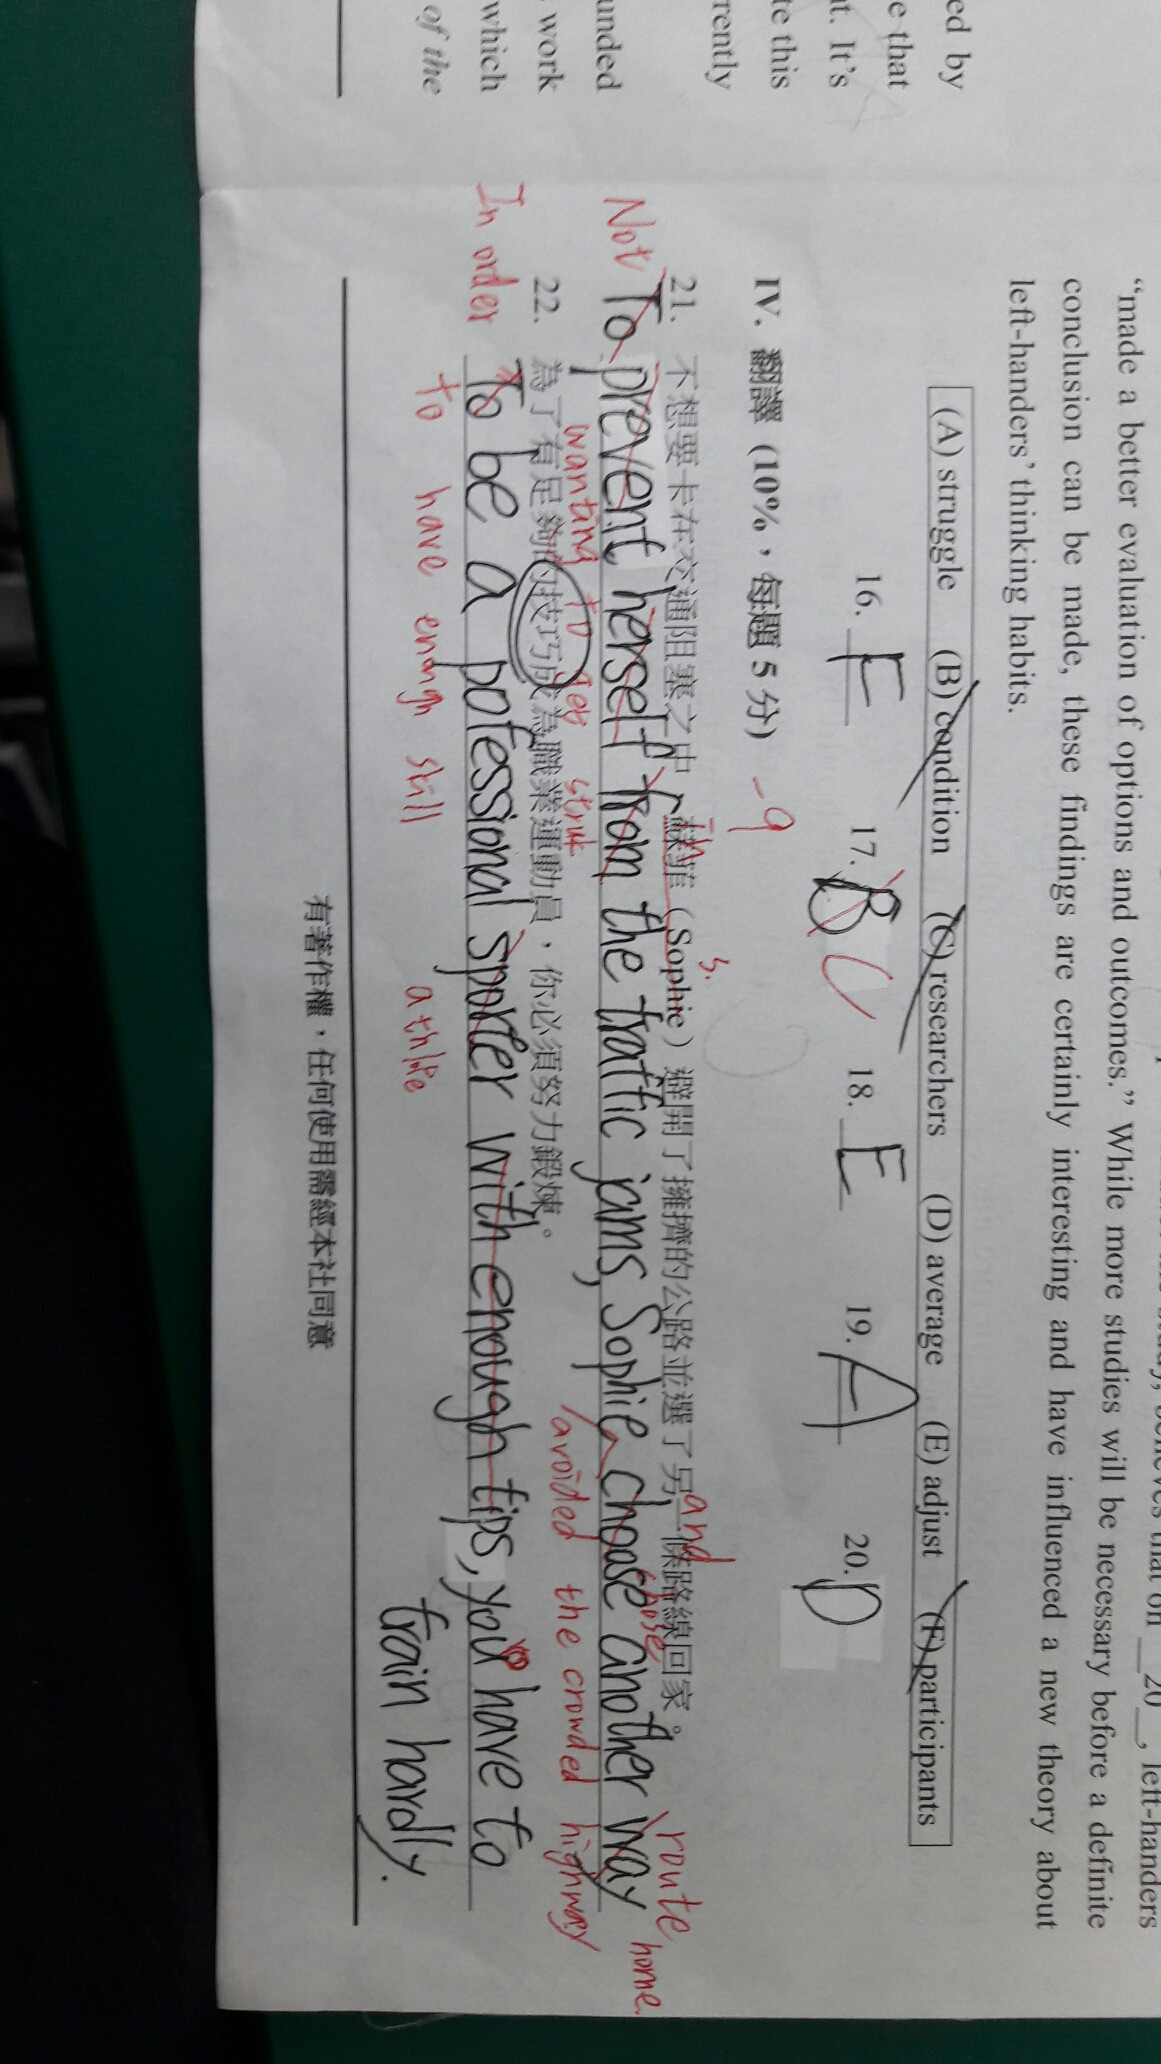 ed by
e that
t. It's
te this
rently
unded
work
which
of the
left-handers
"made a better evaluation of options and outcomes." While more studies will be necessary before a definite
conclusion can be made, these findings are certainly interesting and have influenced a new theory about
left-handers' thinking habits.
(A) struggle (B) condition (C) researchers (D) average (E) adjust (F) participants
16. E 17. B C 18. E 19. A 20. D
IV. 翻譯 (10%,每題 5 分) -9
21. 不想要卡在交通阻塞之中,蘇菲 (Sophie) 避開了擁擠的公路並選了另一條路線回家。
in s. and
Not To prevent herself from the traffic jams, Sophie choose another way
chose route home.
wanting to get stuck avoided the crowded highway
22. 為了有足夠的技巧成為職業運動員,你必須努力鍛煉。
In order To be a potessional sporter with enough tips, you have to
train hardly.
to have enough skill athlete
有著作權,任何使用需經本社同意